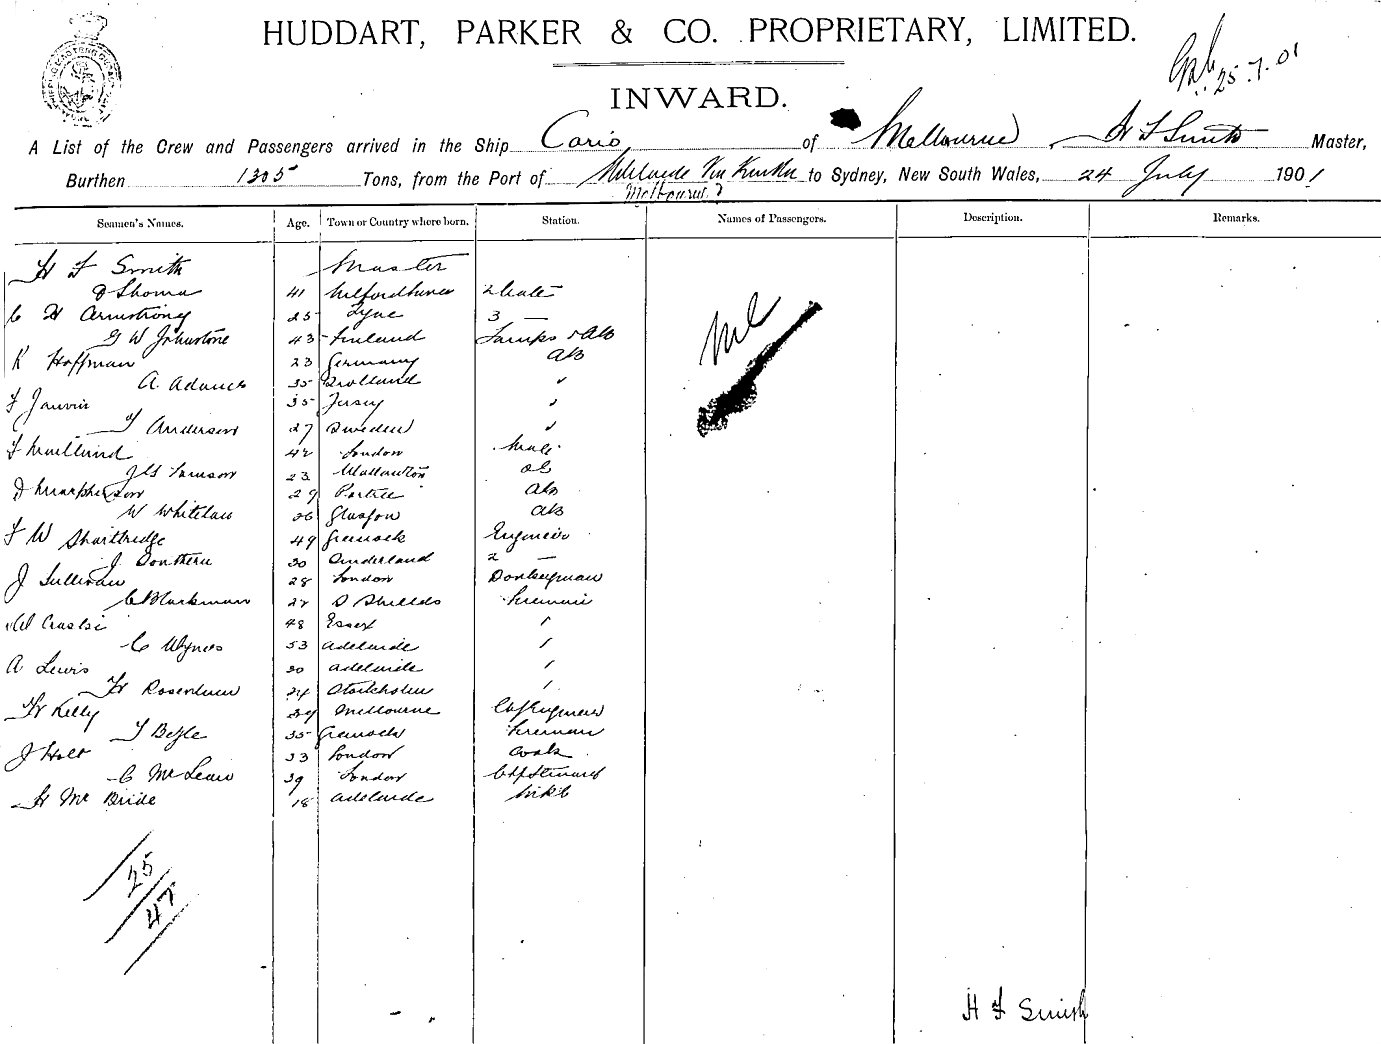 HUDDART, PARKER & CO. PROPRIETARY, LIMITED.
25.7.01
INWARD.
A List of the Crew and Passengers arrived in the Ship Cario of Melbourne, H F Smith Master,
Burthen 1305 Tons, from the Port of Adelaide Via to Sydney, New South Wales, 24 July 1901
Melbourne
Seamen's Names. Age. Town or Country where born. Station. Names of Passengers. Description. Remarks.
H F Smith Master
41 2 Mate
C H Armstrong 25 Tyne 3 —
G W Johnstone 43 Finland Lamps & AB
K Hoffman 23 Germany AB
A. Adams 35 "
F Janvrin 35 Jersey "
Anderson 27 Sweden "
F Maitland 42 London
23 OS
29 Portree AB
W Whitelaw 26 Glasgow AB
F W Shartridge 49 Greenock Engineer
J. Southern 30 Sunderland 2 —
J Sullivan 28 London Donkeyman
C Blackman 22 S Shields Fireman
48 Essex "
C Wynes 53 Adelaide "
A Lewis 30 Adelaide "
Stockholm "
Kelly 34 Melbourne
T Boyle 35 Greenock Fireman
J Holt 33 London Cook
C McLean 39 London Chf Steward
H McBride 18 Adelaide
25
47
H F Smith